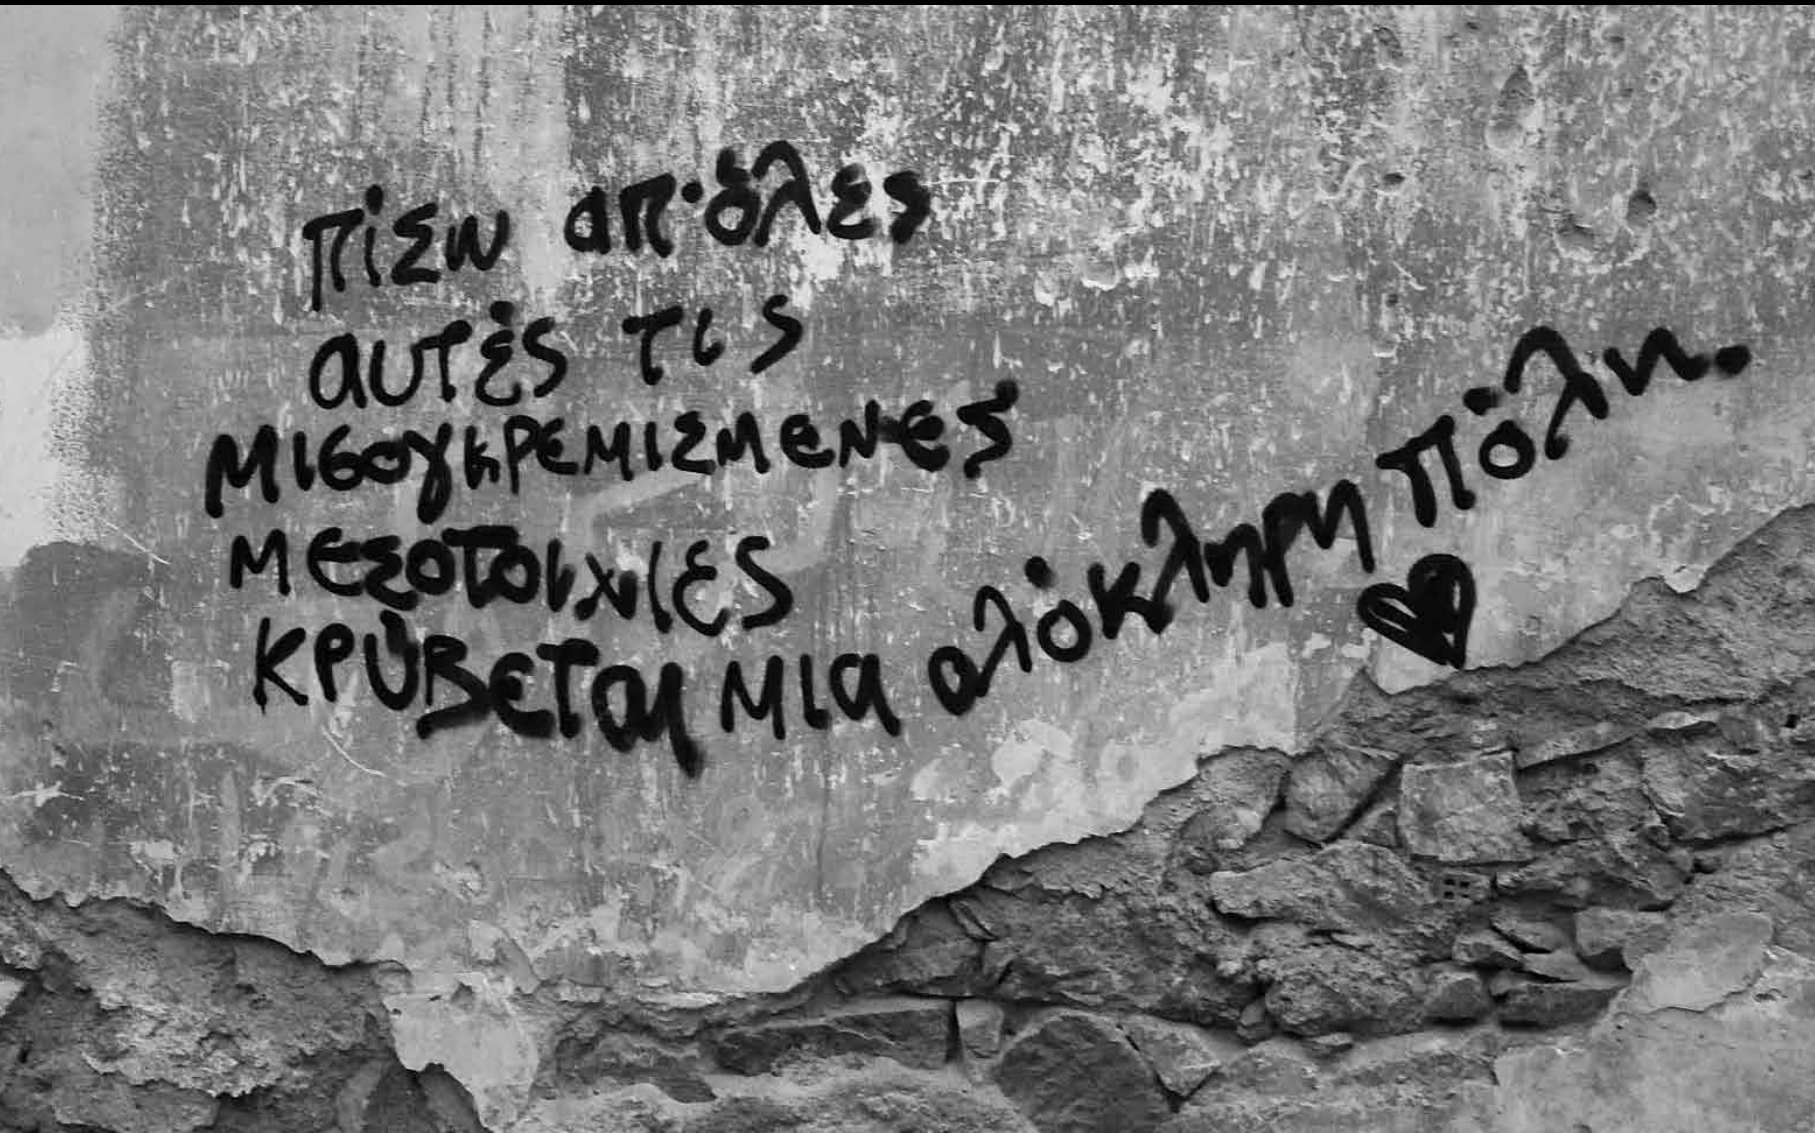 πίσω απ' όλες
αυτές τις
μισογκρεμισμενες
μεσοτοιχιες
κρύβεται μια ολόκληρη πόλη.